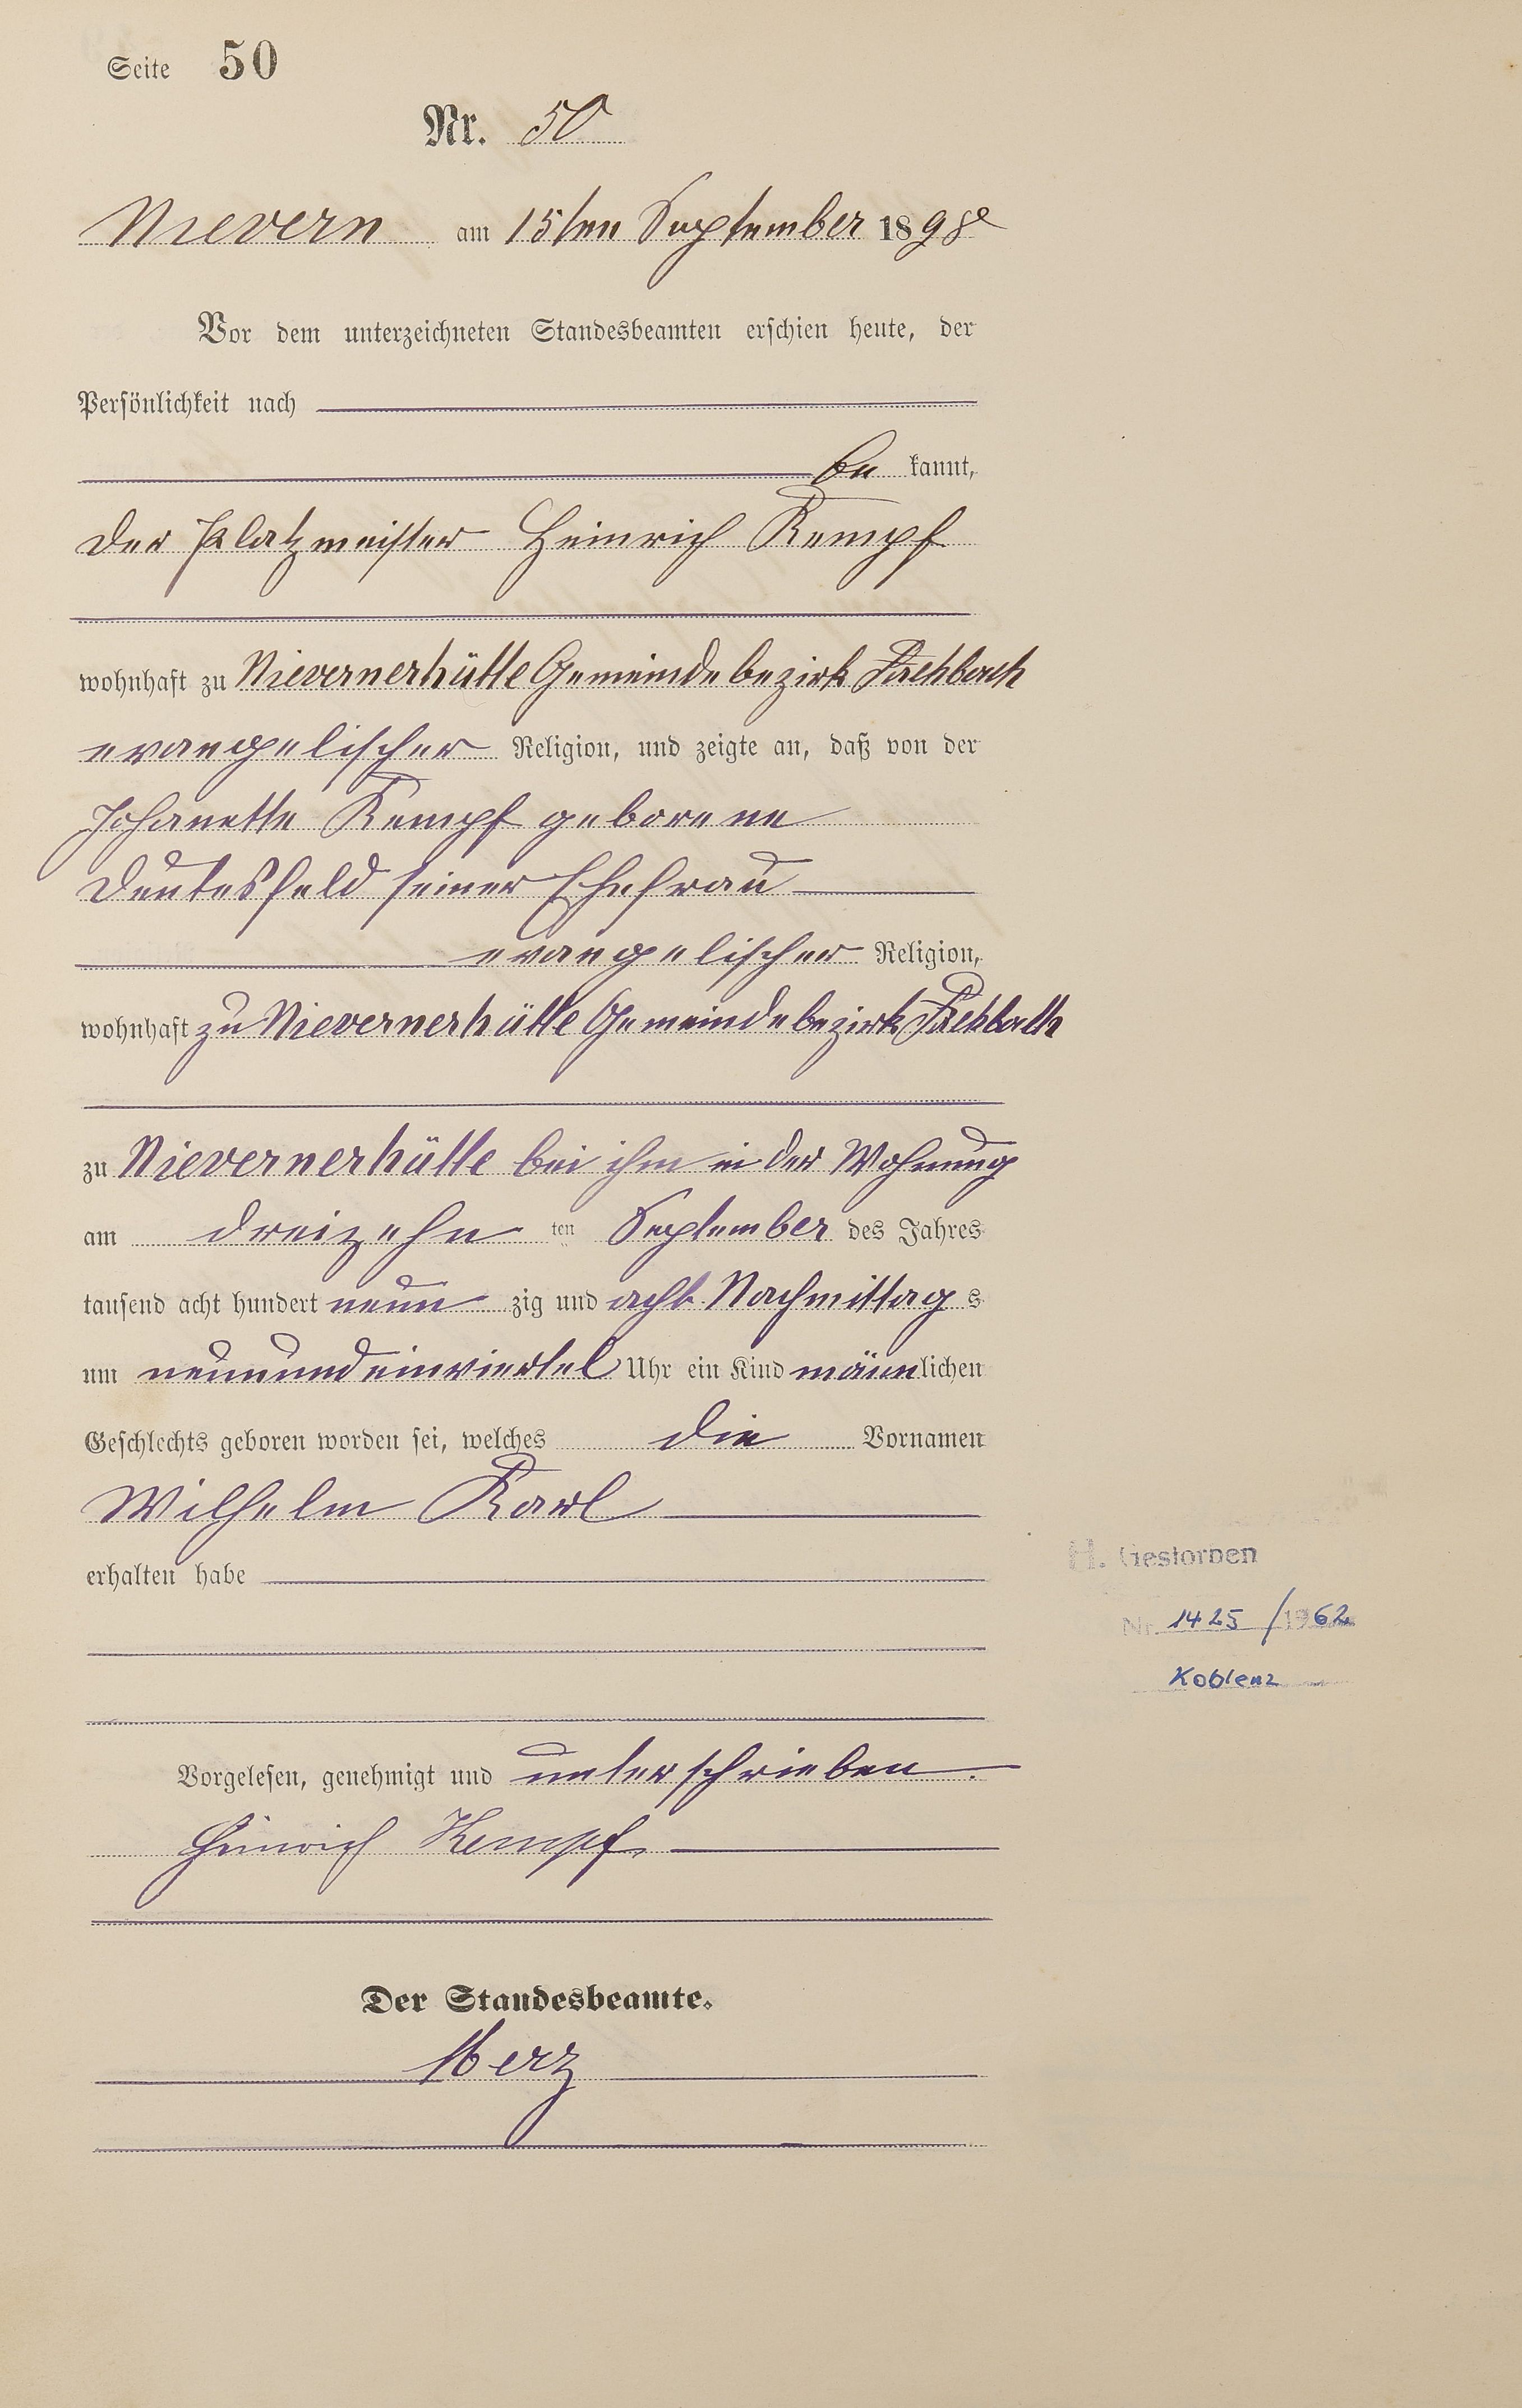 Seite 50
Nr. 50
Nievern am 15ten September 1898
Vor dem unterzeichneten Standesbeamten erschien heute, der
Persönlichkeit nach
be kannt,
der Platzmeister Heinrich Kempf
wohnhaft zu Nievernerhütte Gemeindebezirk Fachbach
evangelischer Religion, und zeigte an, daß von der
Johanette Kempf geborene
Deutesfeld seiner Ehefrau
evangelischer Religion,
wohnhaft zu Nievernerhütte Gemeindebezirk Fachbach
zu Nievernerhütte bei ihm in der Wohnung
am dreizehn ten September des Jahres
tausend acht hundert neun zig und acht Nachmittag s
um neunundeinviertel Uhr ein Kind männlichen
Geschlechts geboren worden sei, welches die Vornamen
Wilhelm Karl
erhalten habe
H. Gestorben
Nr. 1425 /1962
Koblenz
Vorgelesen, genehmigt und unterschrieben.
Heinrich Kempf
Der Standesbeamte.
Merz